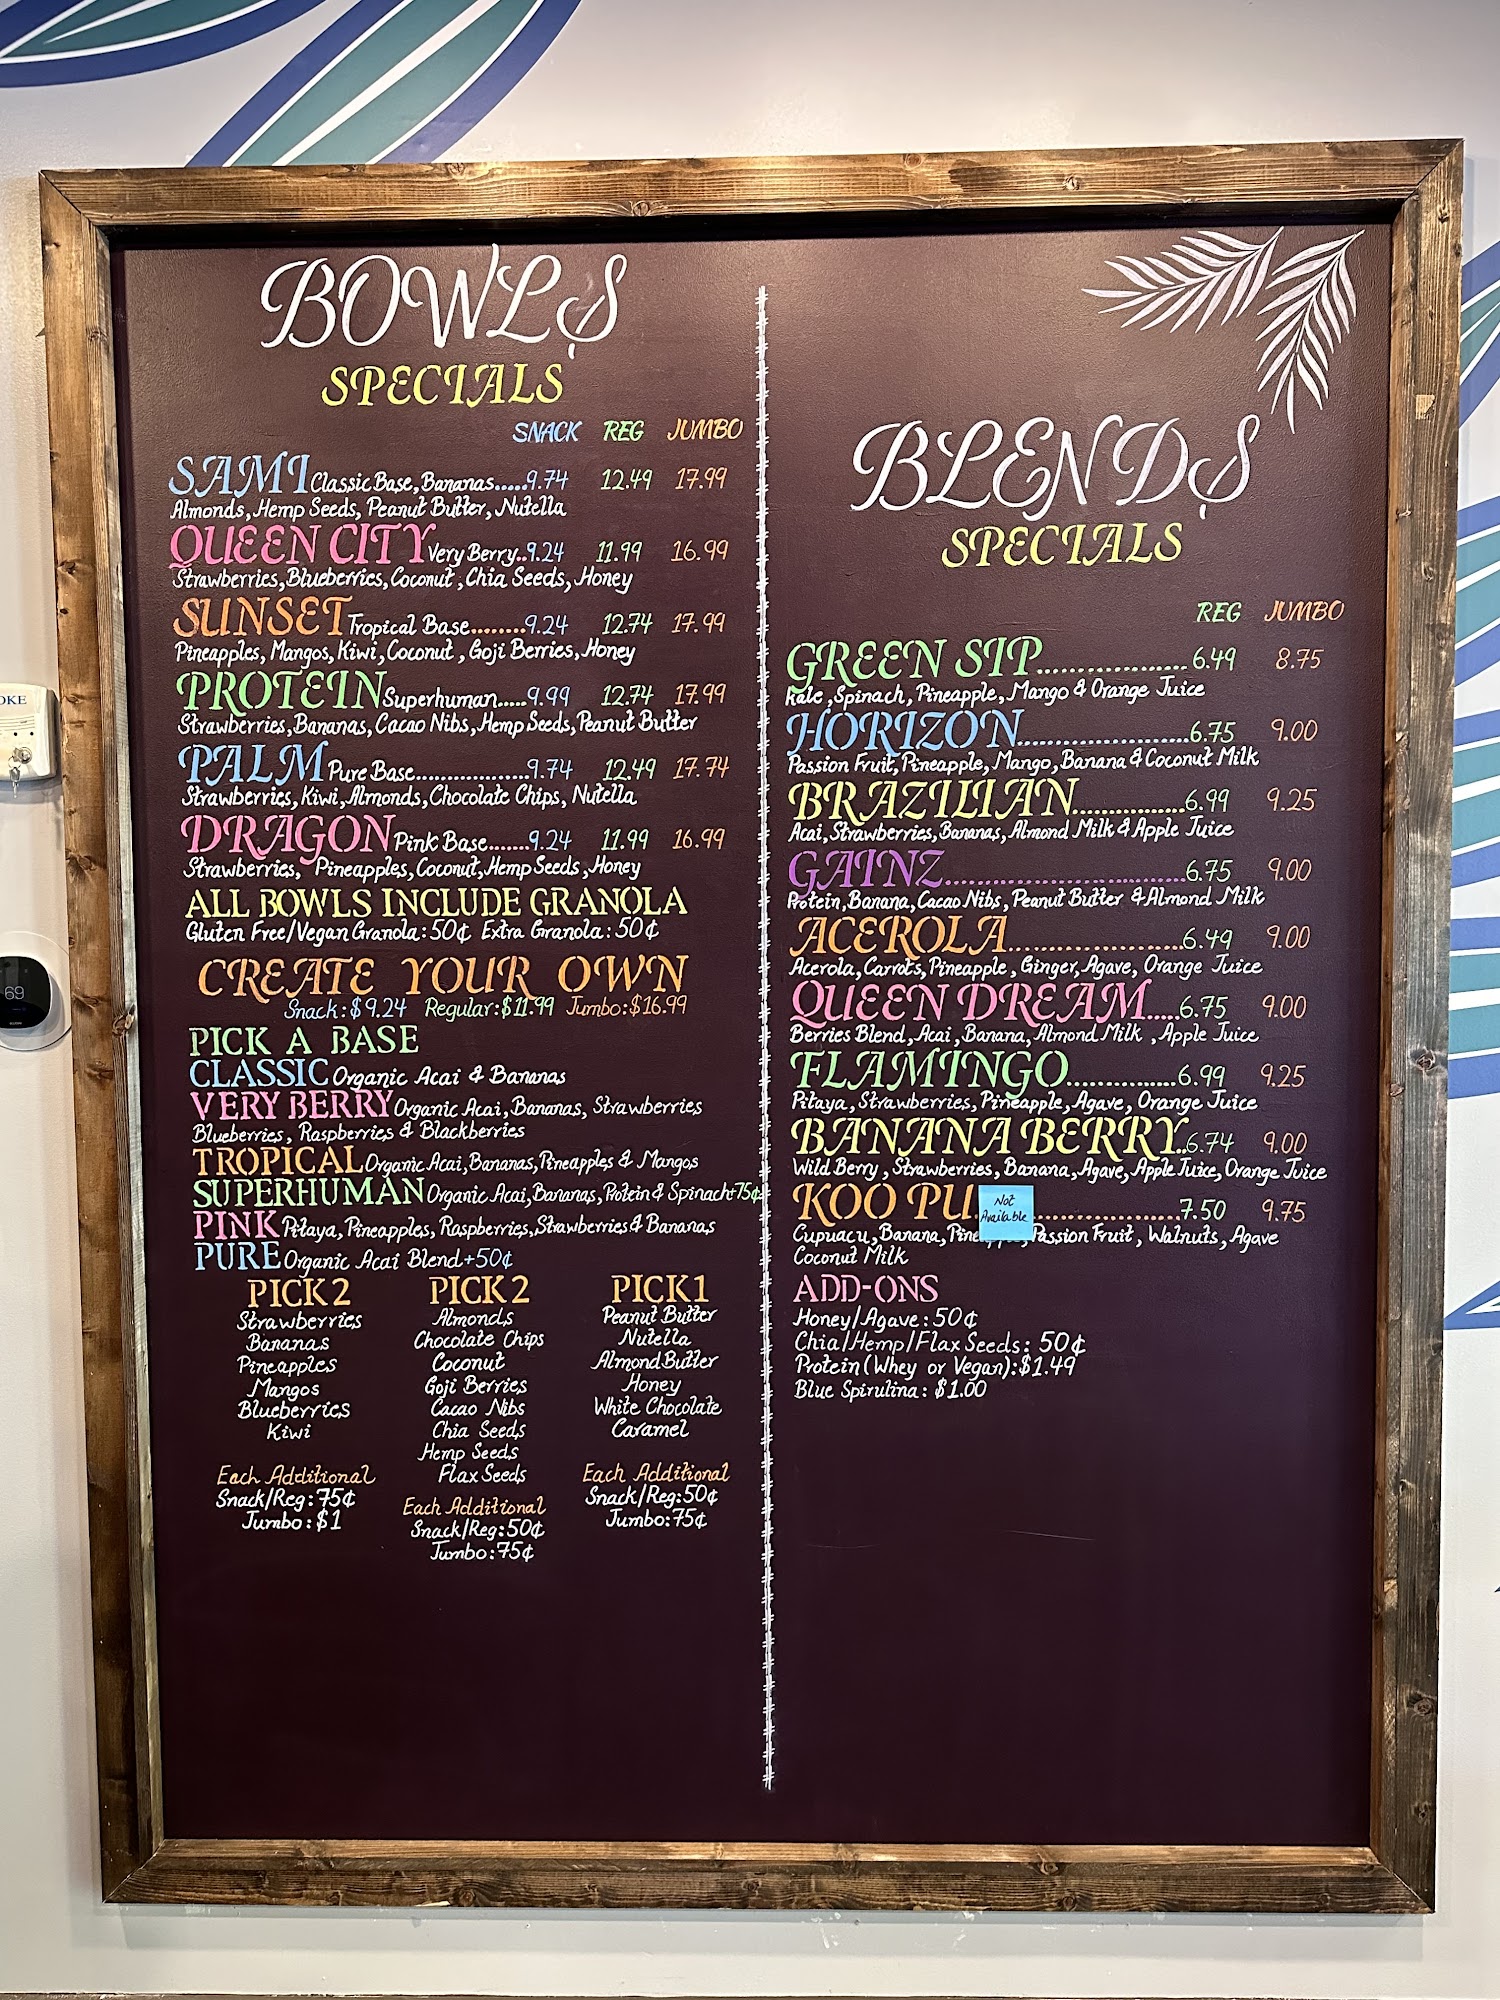 BOWLS
SPECIALS
SNACK REG JUMBO
SAMI Classic Base, Bananas.....9.74 12.49 17.99
Almonds, Hemp Seeds, Peanut Butter, Nutella
QUEEN CITY Very Berry..9.24 11.99 16.99
Strawberries, Blueberries, Coconut, Chia Seeds, Honey
SUNSET Tropical Base........9.24 12.74 17.99
Pineapples, Mangos, Kiwi, Coconut, Goji Berries, Honey
PROTEIN Superhuman.....9.99 12.74 17.99
Strawberries, Bananas, Cacao Nibs, Hemp Seeds, Peanut Butter
PALM Pure Base....................9.74 12.49 17.74
Strawberries, Kiwi, Almonds, Chocolate Chips, Nutella
DRAGON Pink Base........9.24 11.99 16.99
Strawberries, Pineapples, Coconut, Hemp Seeds, Honey
ALL BOWLS INCLUDE GRANOLA
Gluten Free/Vegan Granola: 50¢ Extra Granola: 50¢
CREATE YOUR OWN
Snack: $9.24 Regular: $11.99 Jumbo: $16.99
PICK A BASE
CLASSIC Organic Acai & Bananas
VERY BERRY Organic Acai, Bananas, Strawberries
Blueberries, Raspberries & Blackberries
TROPICAL Organic Acai, Bananas, Pineapples & Mangos
SUPERHUMAN Organic Acai, Bananas, Protein & Spinach+75¢
PINK Pitaya, Pineapples, Raspberries, Strawberries & Bananas
PURE Organic Acai Blend+50¢
PICK 2
Strawberries
Bananas
Pineapples
Mangos
Blueberries
Kiwi
Each Additional
Snack/Reg: 75¢
Jumbo: $1
PICK 2
Almonds
Chocolate Chips
Coconut
Goji Berries
Cacao Nibs
Chia Seeds
Hemp Seeds
Flax Seeds
Each Additional
Snack/Reg: 50¢
Jumbo: 75¢
PICK 1
Peanut Butter
Nutella
Almond Butter
Honey
White Chocolate
Caramel
Each Additional
Snack/Reg: 50¢
Jumbo: 75¢
BLENDS
SPECIALS
REG JUMBO
GREEN SIP...................6.49 8.75
Kale, Spinach, Pineapple, Mango & Orange Juice
HORIZON......................6.75 9.00
Passion Fruit, Pineapple, Mango, Banana & Coconut Milk
BRAZILIAN..............6.99 9.25
Acai, Strawberries, Bananas, Almond Milk & Apple Juice
GAINZ..............................6.75 9.00
Protein, Banana, Cacao Nibs, Peanut Butter & Almond Milk
ACEROLA......................6.49 9.00
Acerola, Carrots, Pineapple, Ginger, Agave, Orange Juice
QUEEN DREAM.....6.75 9.00
Berries Blend, Acai, Banana, Almond Milk, Apple Juice
FLAMINGO..............6.99 9.25
Pitaya, Strawberries, Pineapple, Agave, Orange Juice
BANANA BERRY..6.74 9.00
Wild Berry, Strawberries, Banana, Agave, Apple Juice, Orange Juice
KOO PU...................7.50 9.75
Not
Available
Cupuacu, Banana, Passion Fruit, Walnuts, Agave
Coconut Milk
ADD-ONS
Honey/Agave: 50¢
Chia/Hemp/Flax Seeds: 50¢
Protein (Whey or Vegan): $1.49
Blue Spirulina: $1.00
OKE
69